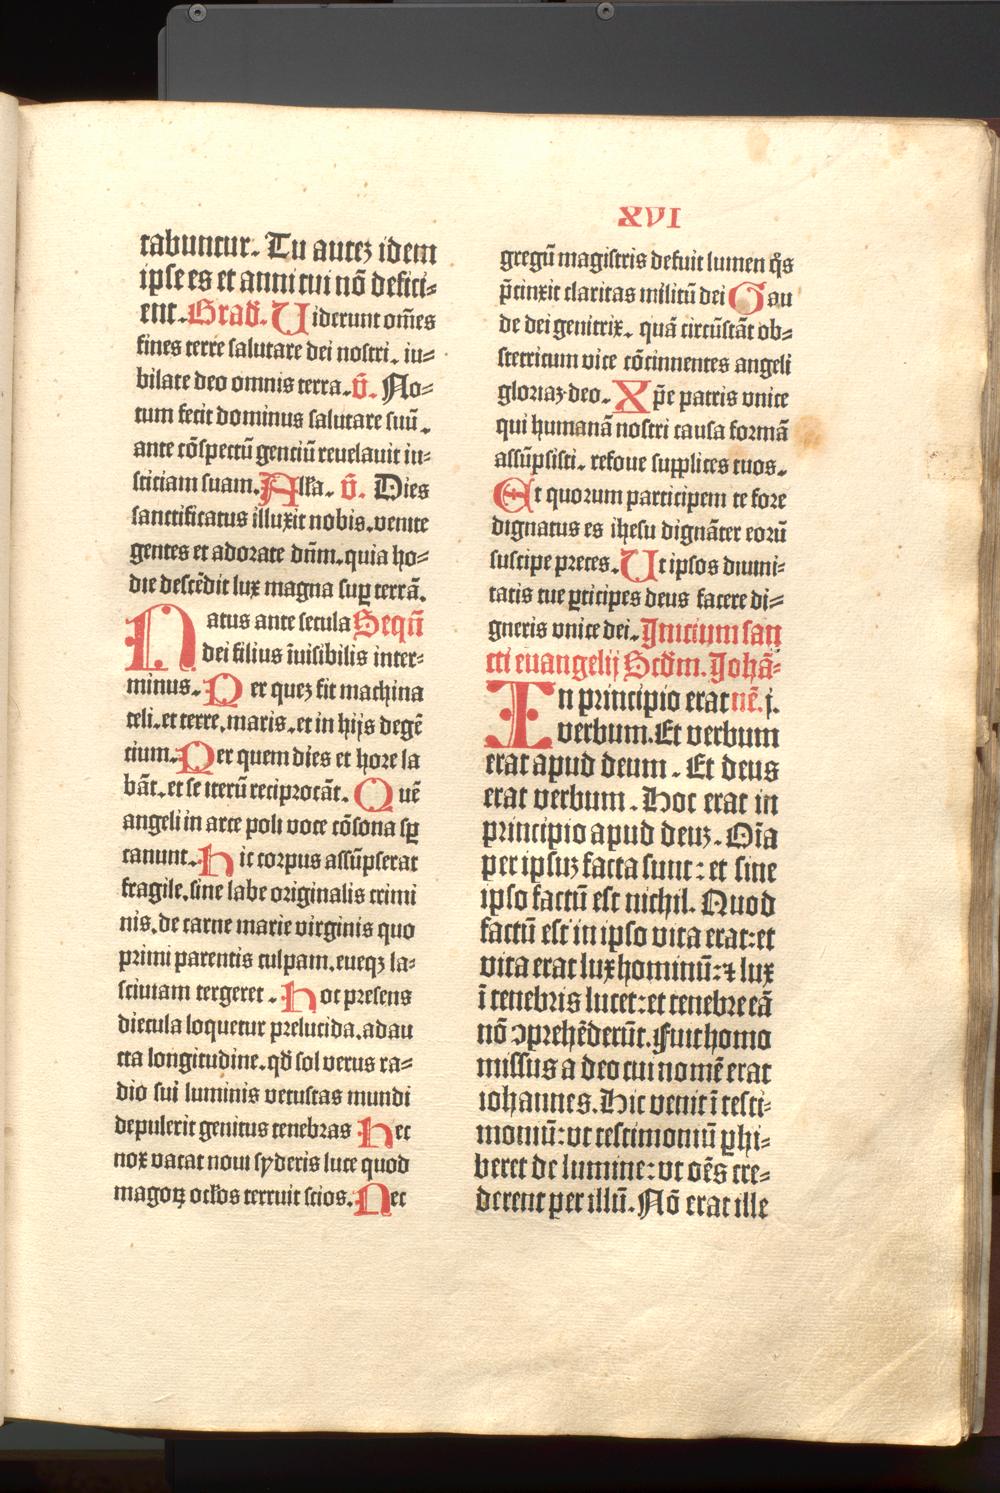 XVI
tabuntur. Tu autez idem
ipse es et anni tui nō defici⸗
ent. Grad. Uiderunt om̄es
fines terre salutare dei nostri. iu⸗
bilate deo omnis terra. v̄. No⸗
tum fecit dominus salutare suū.
ante cōspectū gentiū reuelauit iu⸗
sticiam suam. Alľa. v̄. Dies
sanctificatus illuxit nobis. venite
gentes et adorate dn̄m. quia ho⸗
die descēdit lux magna suꝑ terrā.
Natus ante secula Seqū
dei filius īuisibilis inter⸗
minus. Per quez fit machina
celi. et terre, maris. et in hijs degē
cium. Per quem dies et hore la
bāt. et se iterū reciprocāt. Quē
angeli in arce poli voce cōsona sꝑ
canunt. Hic corpus assūpserat
fragile. sine labe originalis crimi
nis. de carne marie virginis quo
primi parentis culpam. eueqꝫ la⸗
sciuiam tergeret. Hoc presens
diecula loquetur prelucida. adau
cta longitudine. qđ sol verus ra⸗
dio sui luminis vetustas mundi
depulerit genitus tenebras Nec
nox vacat noui syderis luce quod
magoꝝ ocľos terruit scios. Nec
gregū magistris defuit lumen q̄s
p̄cinxit claritas militū dei Gau
de dei genitrix. quā circūstāt ob⸗
stetricum vice cōcinnentes angeli
gloriaz deo. Xp̄e patris vnice
qui humanā nostri causa formā
assūpsisti. refoue supplices tuos.
Et quorum participem te fore
dignatus es ihesu dignāter eorū
suscipe preces. Ut ipsos diuini⸗
tatis tue ꝑticipes deus facere di⸗
gneris vnice dei. Inicium san
cti euangelij Scđm. Johā⸗
In principio erat nē. j.
verbum. Et verbum
erat apud deum. Et deus
erat verbum. Hoc erat in
principio apud deuz. Oīa
per ipsuz facta sunt: et sine
ipso factū est nichil. Quod
factū est in ipso vita erat: et
vita erat lux hominū: ⁊ lux
ī tenebris lucet: et tenebre eā
nō ↄprehēderūt. Fuit homo
missus a deo cui nomē erat
iohannes. Hic venit ī testi⸗
moniū: vt testimoniū ꝑhi⸗
beret de lumine: vt oēs cre⸗
derent per illū. Nō erat ille